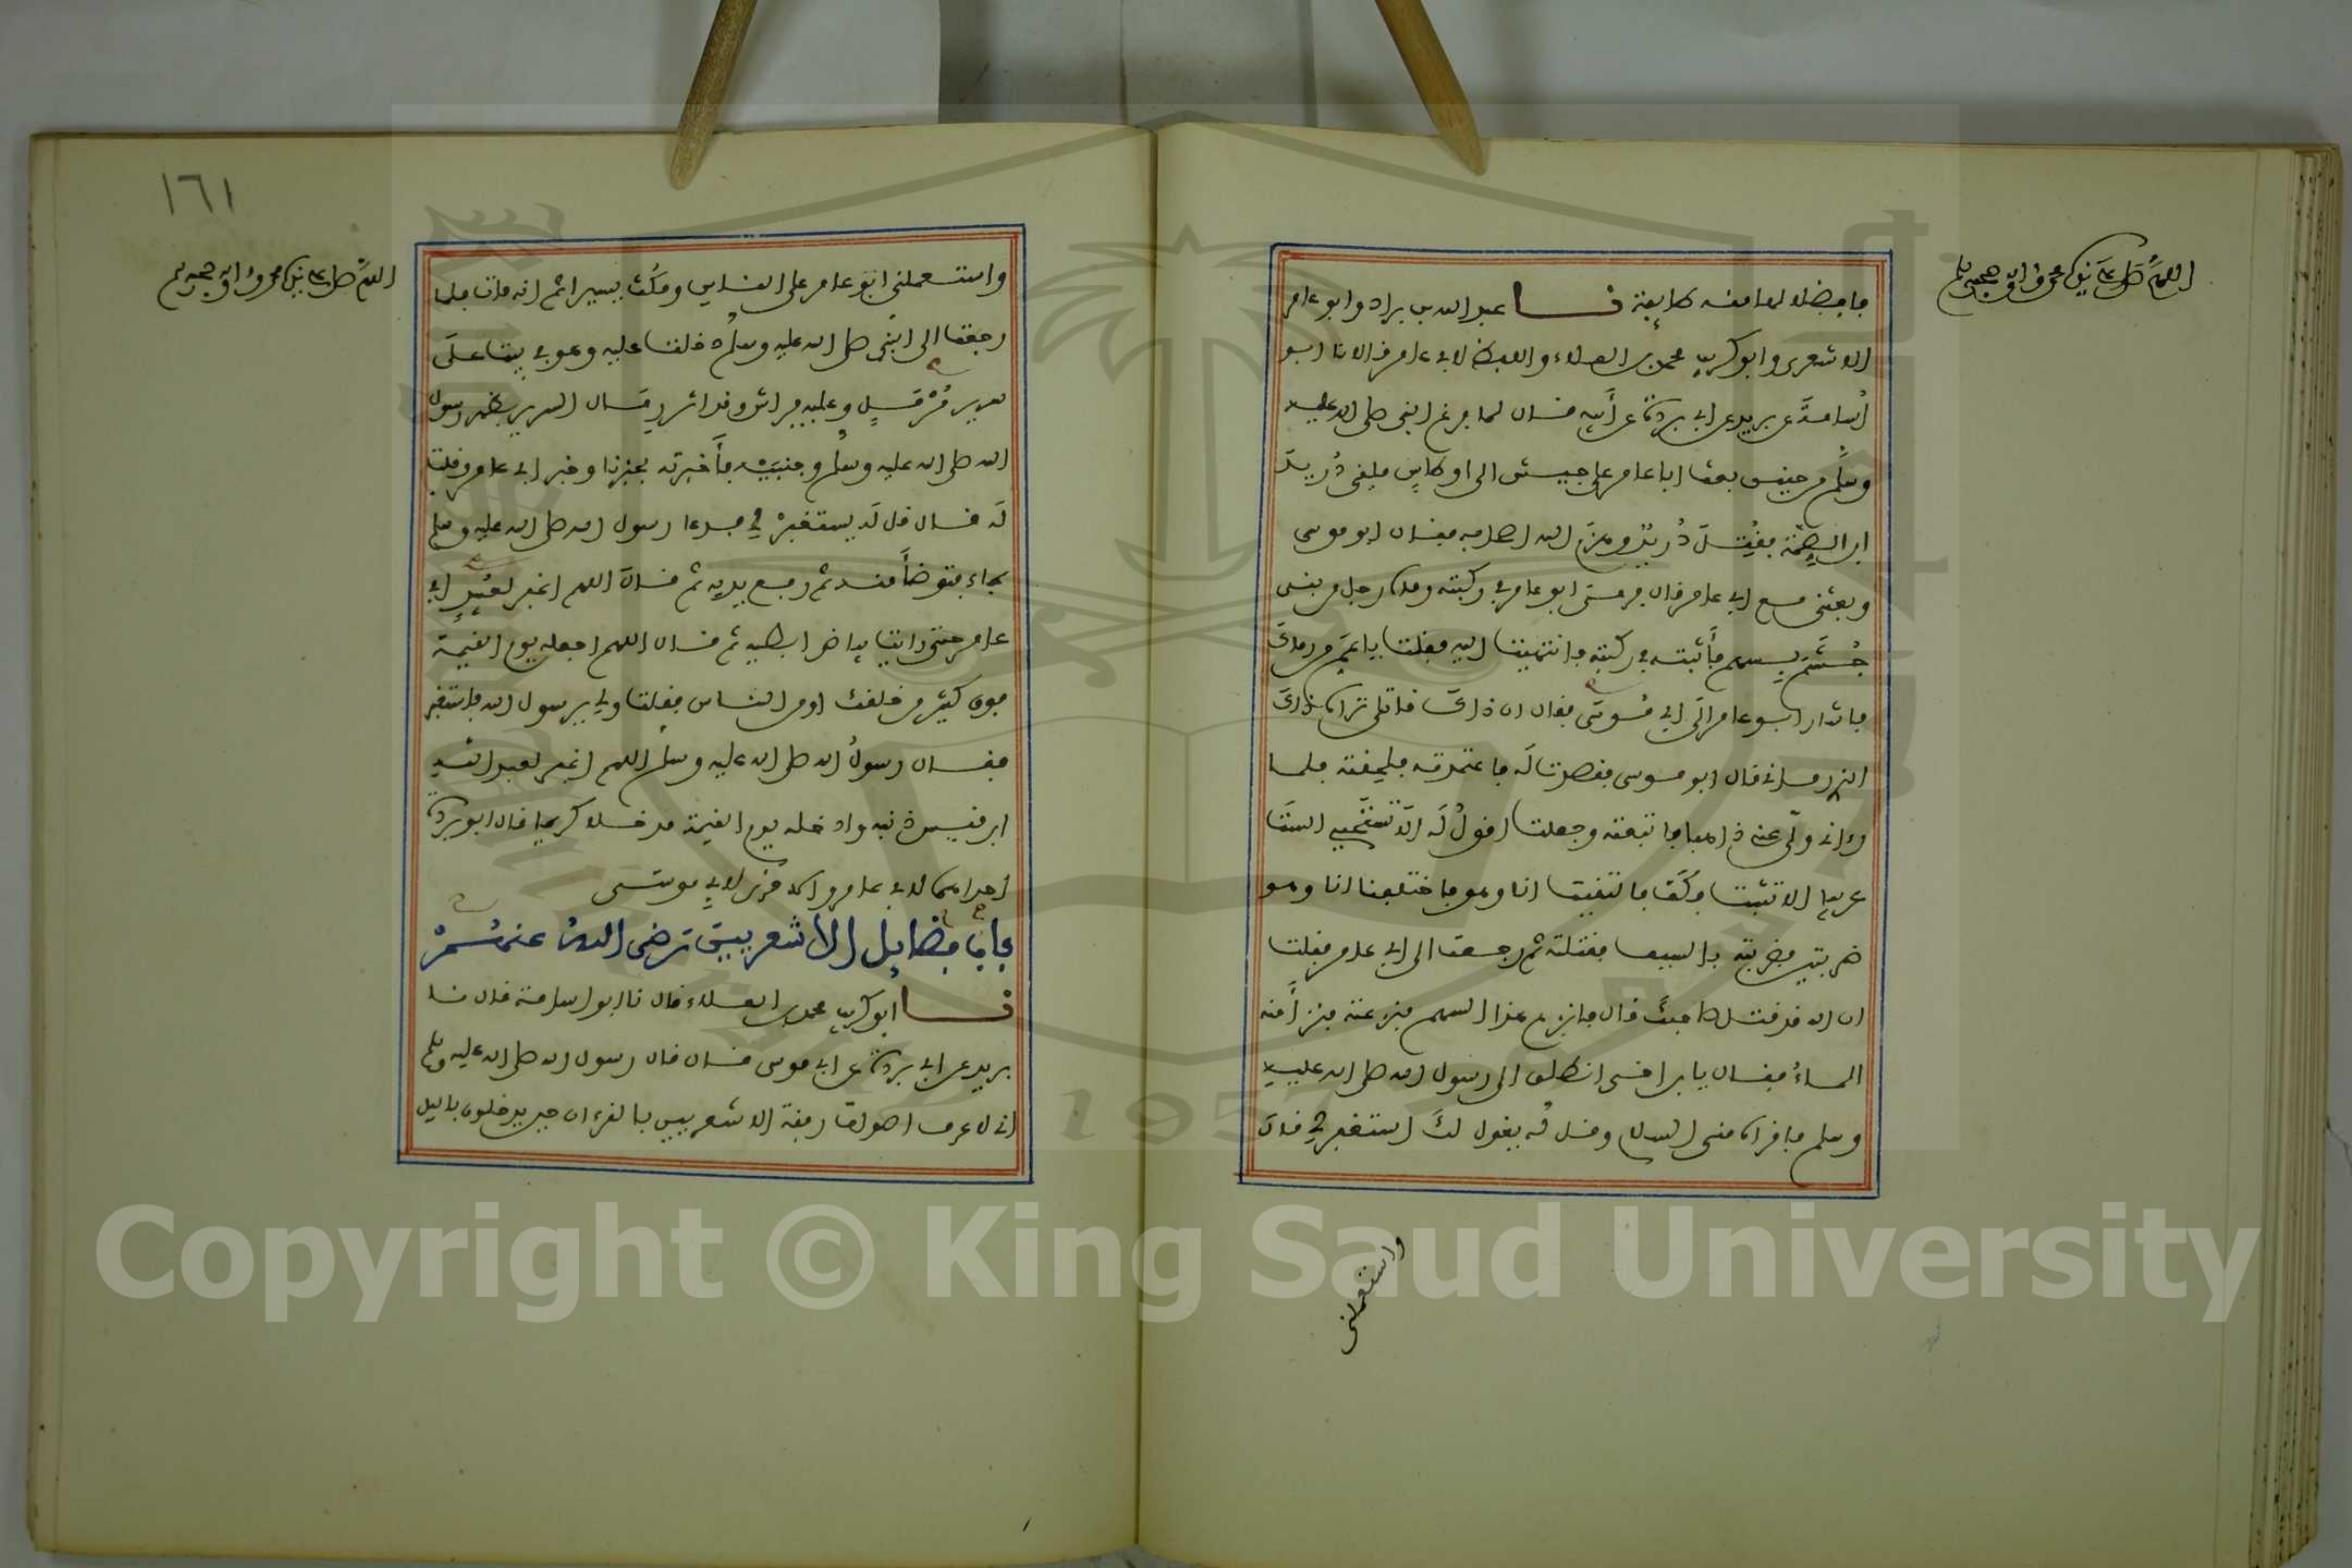 اللهم صل على نبيك محمد وءاله وصحبه وسلم
فافضلا لها منه طايفة نا عبد الله بن براد وابو عامر
الاشعرى وابو كريب محمد بن العلاء واللفظ لابى عامر قالا نا ابو
أسامة عن بريد عن ابى بردة عن أبيه قال لما فرغ النبى صلى الله عليه
وسلم من حنين بعث ابا عامر على جيش الى اوطاس فلقى دُريد
ابن الصمة فقُتل دُريد وهزم الله اصحابه فقال ابو موسى
وبعثنى مع ابى عامر قال فرمى ابو عامر فى ركبته رماه رجل من بنى
جُشَم بسهم فأثبته فى ركبته فانتهيت اليه فقلت يا عم من رماك
فاشار ابو عامر الى ابى موسى فقال ان ذاك قاتلى تراه ذاك
الذى رمانى قال ابو موسى فقصدت له فاعتمدته فلحقته فلما
رءانى ولى عنى ذاهبا فاتبعته وجعلت اقول له الا تستحيى الست
عربيا الا تثبت فكف فالتقيت انا وهو فاختلفنا انا وهو
ضربتين فضربته بالسيف فقتلته ثم رجعت الى ابى عامر فقلت
ان الله قد قتل صاحبك قال فانزع هذا السهم فنزعته فنزا منه
الماء فقال يا بن اخى انطلق الى رسول الله صلى الله عليه
وسلم فاقراه منى السلام وقل له يقول لك استغفر لى قال
واستعملنى
١٦١
اللهم صل على نبيك محمد وءاله وصحبه وسلم
واستعملنى ابو عامر على الناس ومكث يسيرا ثم انه مات فلما
رجعت الى النبى صلى الله عليه وسلم دخلت عليه وهو فى بيت على
سرير مُرْمَل وعليه فراش وقد اثر رمال السرير بظهر رسول
الله صلى الله عليه وسلم وجنبيه فأخبرته بخبرنا وخبر ابى عامر وقلت
له قال قل له يستغفر لى فدعا رسول الله صلى الله عليه وسلم
بماء فتوضأ منه ثم رفع يديه ثم قال اللهم اغفر لعبيد ابى
عامر حتى رايت بياض ابطيه ثم قال اللهم اجعله يوم القيمة
فوق كثير من خلقك او من الناس فقلت ولى يرسول الله فاستغفر
فقال رسول الله صلى الله عليه وسلم اللهم اغفر لعبد الله
ابن قيس ذنبه وادخله يوم القيمة مدخلا كريما قال ابو بردة
احداهما لابى عامر والاخرى لابى موسى
باب فضايل الاشعريين رضى الله عنهم
نا ابو كريب محمد بن العلاء قال نا ابو اسامة قال نا
بريد عن ابى بردة عن ابى موسى قال قال رسول الله صلى الله عليه وسلم
انى لاعرف اصوات رفقة الاشعريين بالقرءان حين يدخلون باليل
Copyright © King Saud University
1957